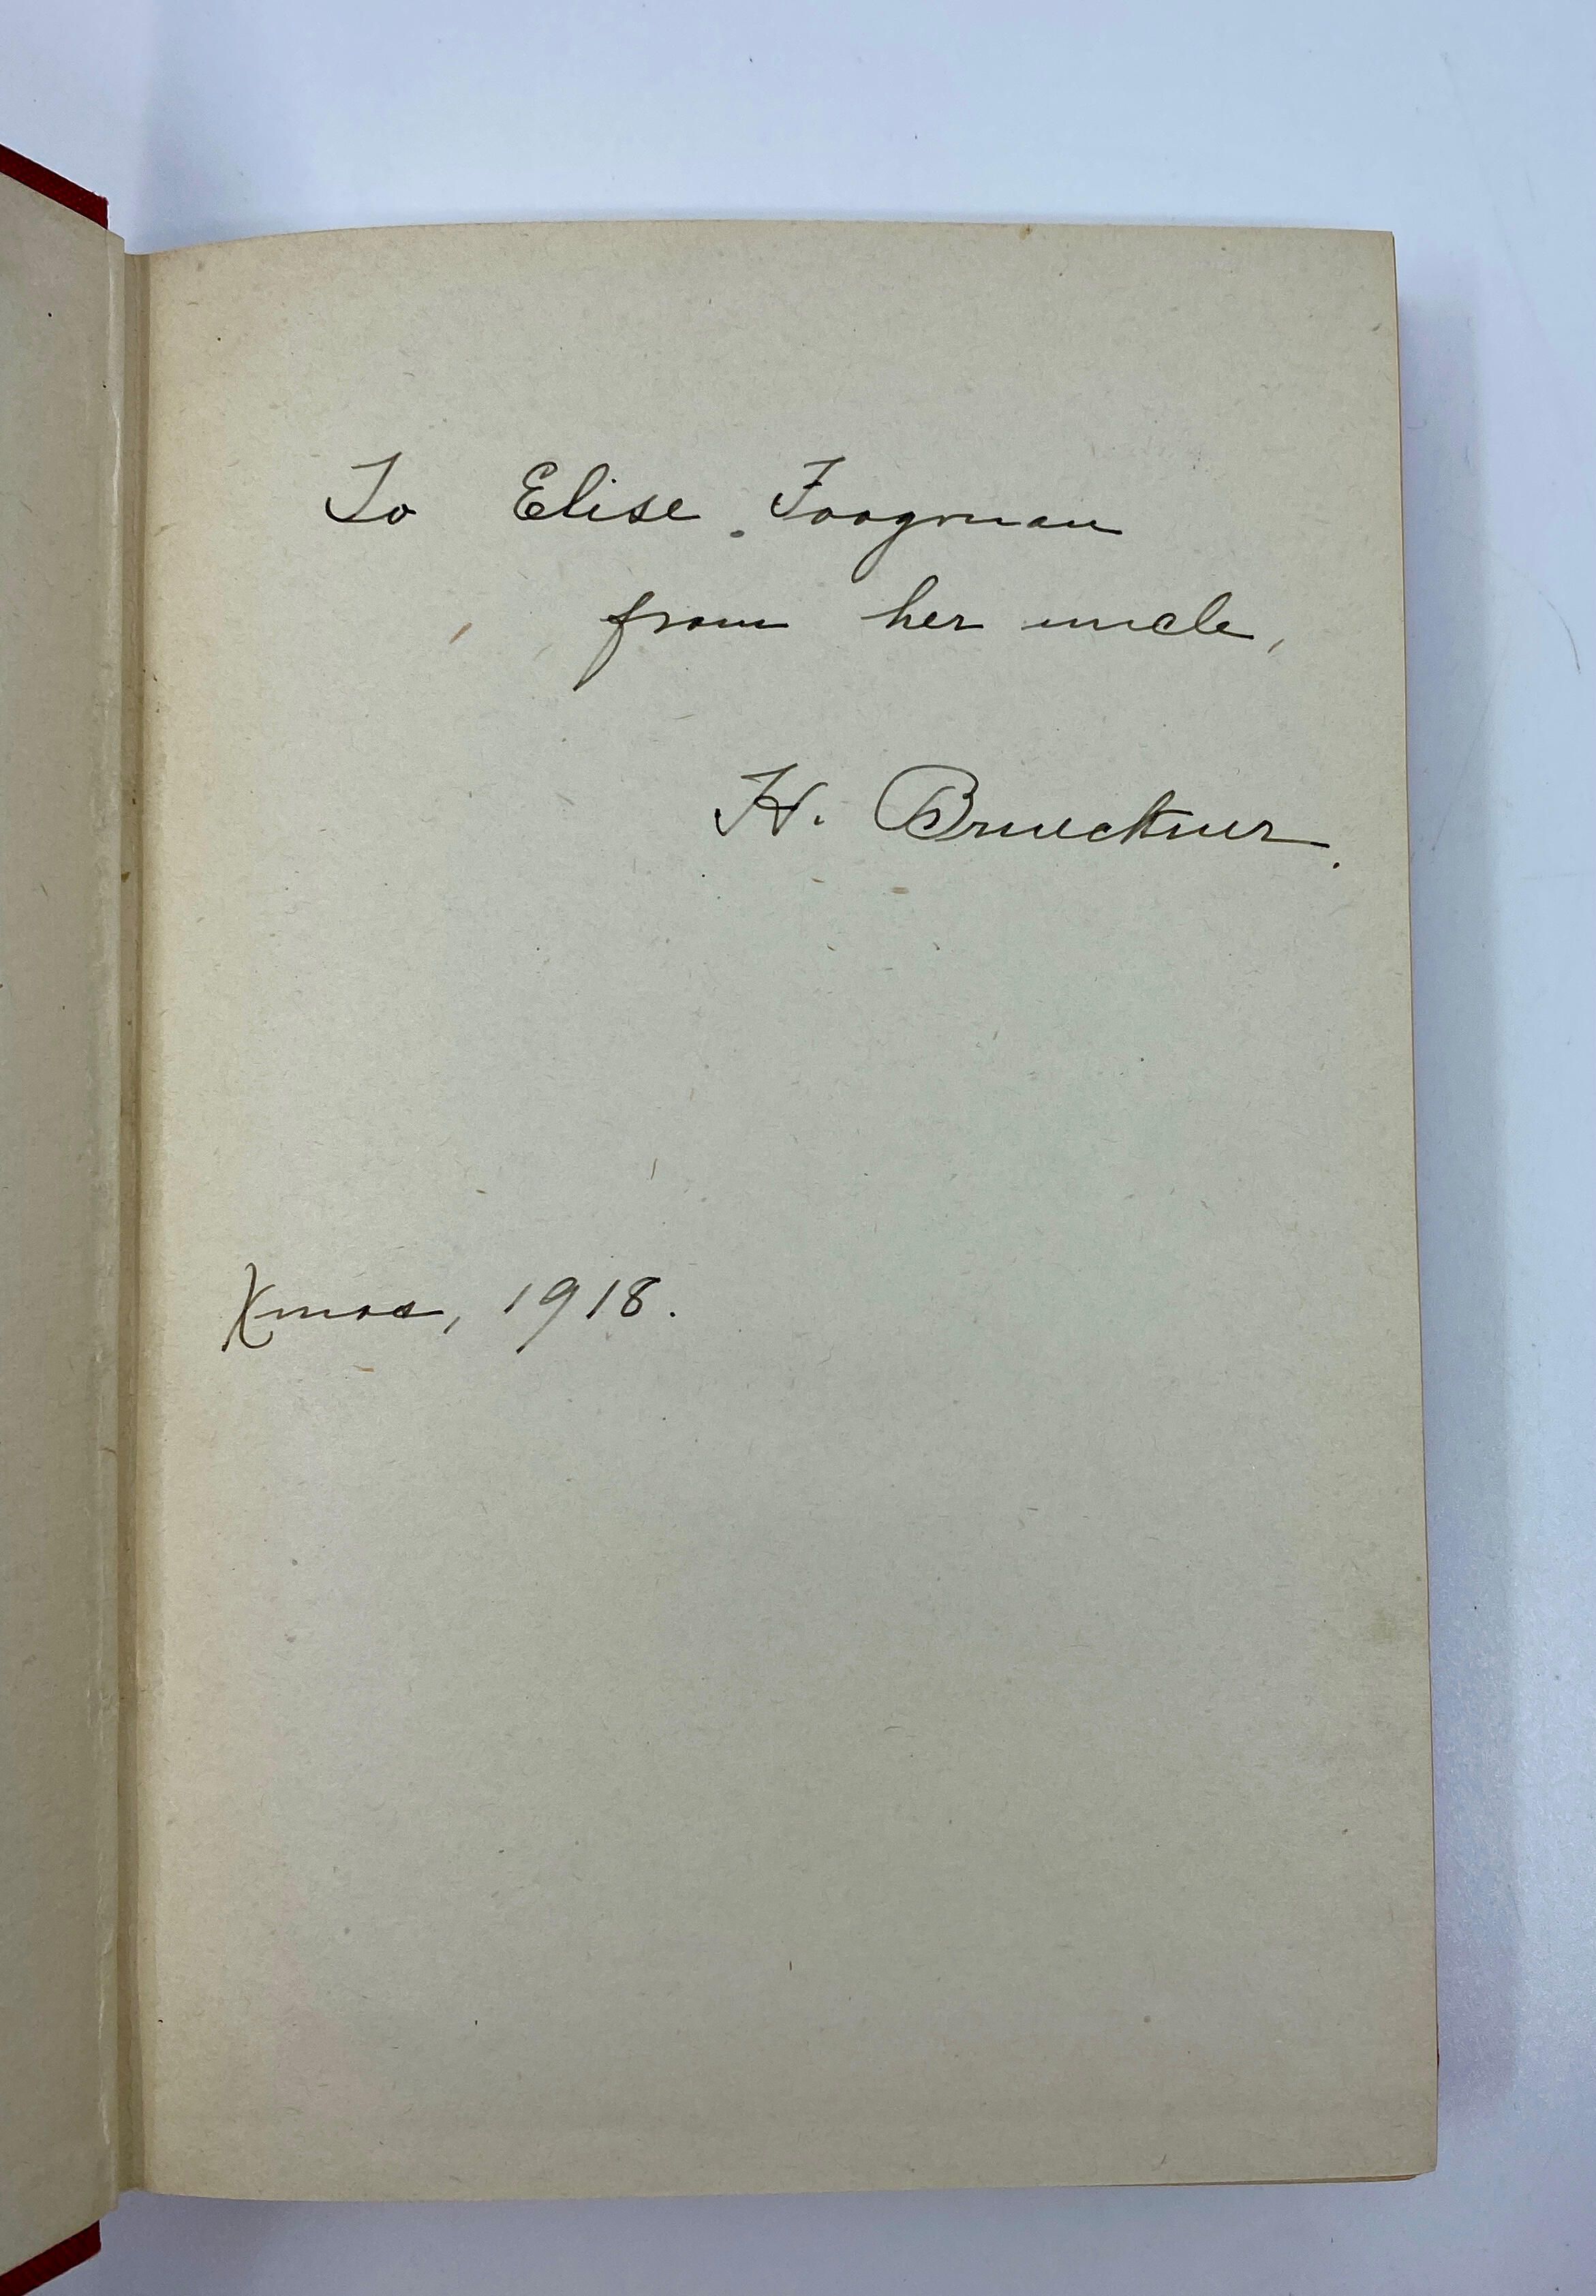 To Elise Foogman
from her uncle,
H. Brueckner.
Xmas, 1918.